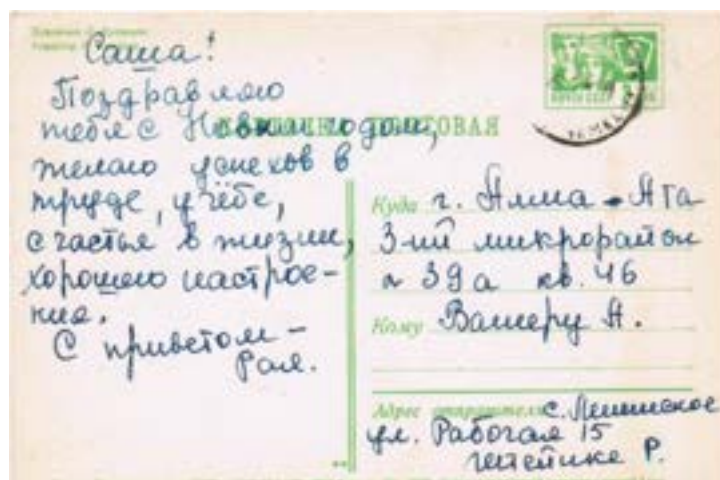 Саша!
Поздравляю
тебя с Новым годом,
желаю успехов в
труде, учёбе,
счастья в жизни,
хорошего настрое-
ния.
С приветом –
Рая.
КАРТОЧКА ПОЧТОВАЯ
ПОЧТА СССР
Куда г. Алма-Ата
3-ий микрорайон
39а кв. 46
Кому Вагнеру А.
Адрес отправителя: с. Ленинское
ул. Рабочая 15
Р.